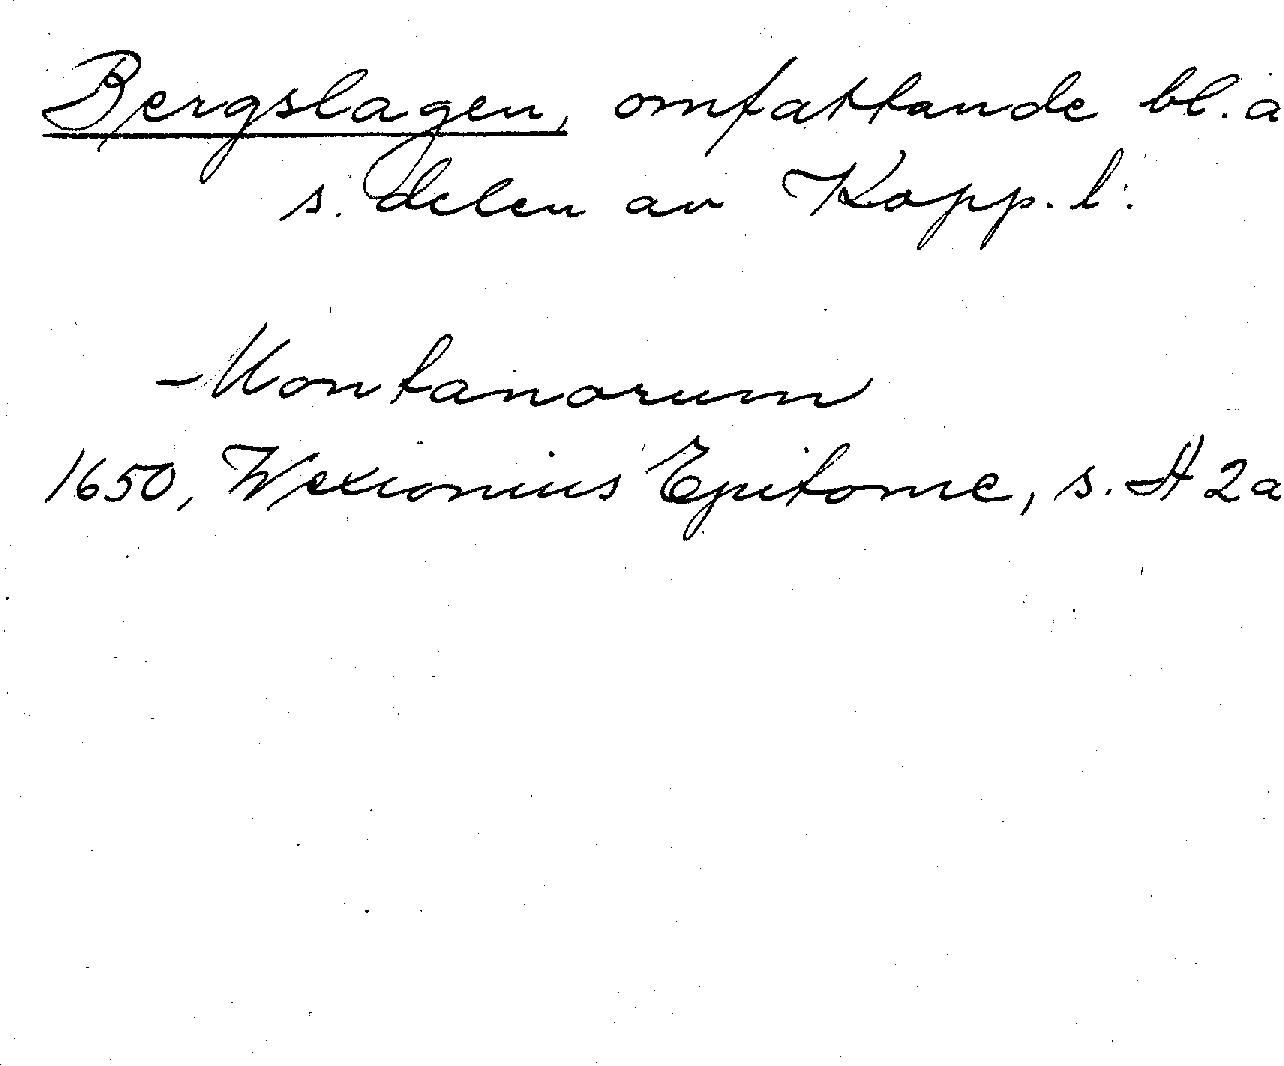 Bergslagen, omfattande bl. a
s. delen av Kopp. l:
- Montanorum
1650, Wexionius Epitome, s. A 2a